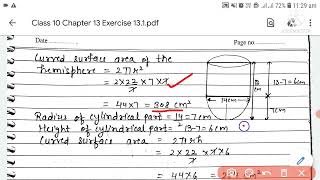 11:29 am
Class 10 Chapter 13 Exercise 13.1.pdf
Date:
Page no:
Curved surface area of the
hemisphere = 2πr²
= 2×22/7 ×7×7
= 44×7 = 308 cm²
Radius of cylindrical part = 14 = 7cm
Height of cylindrical part = 13-7=6cm
Curved surface area = 2πrh
= 2×22/7 ×7×6
= 44×6 =
14cm
13-7=6cm
7cm